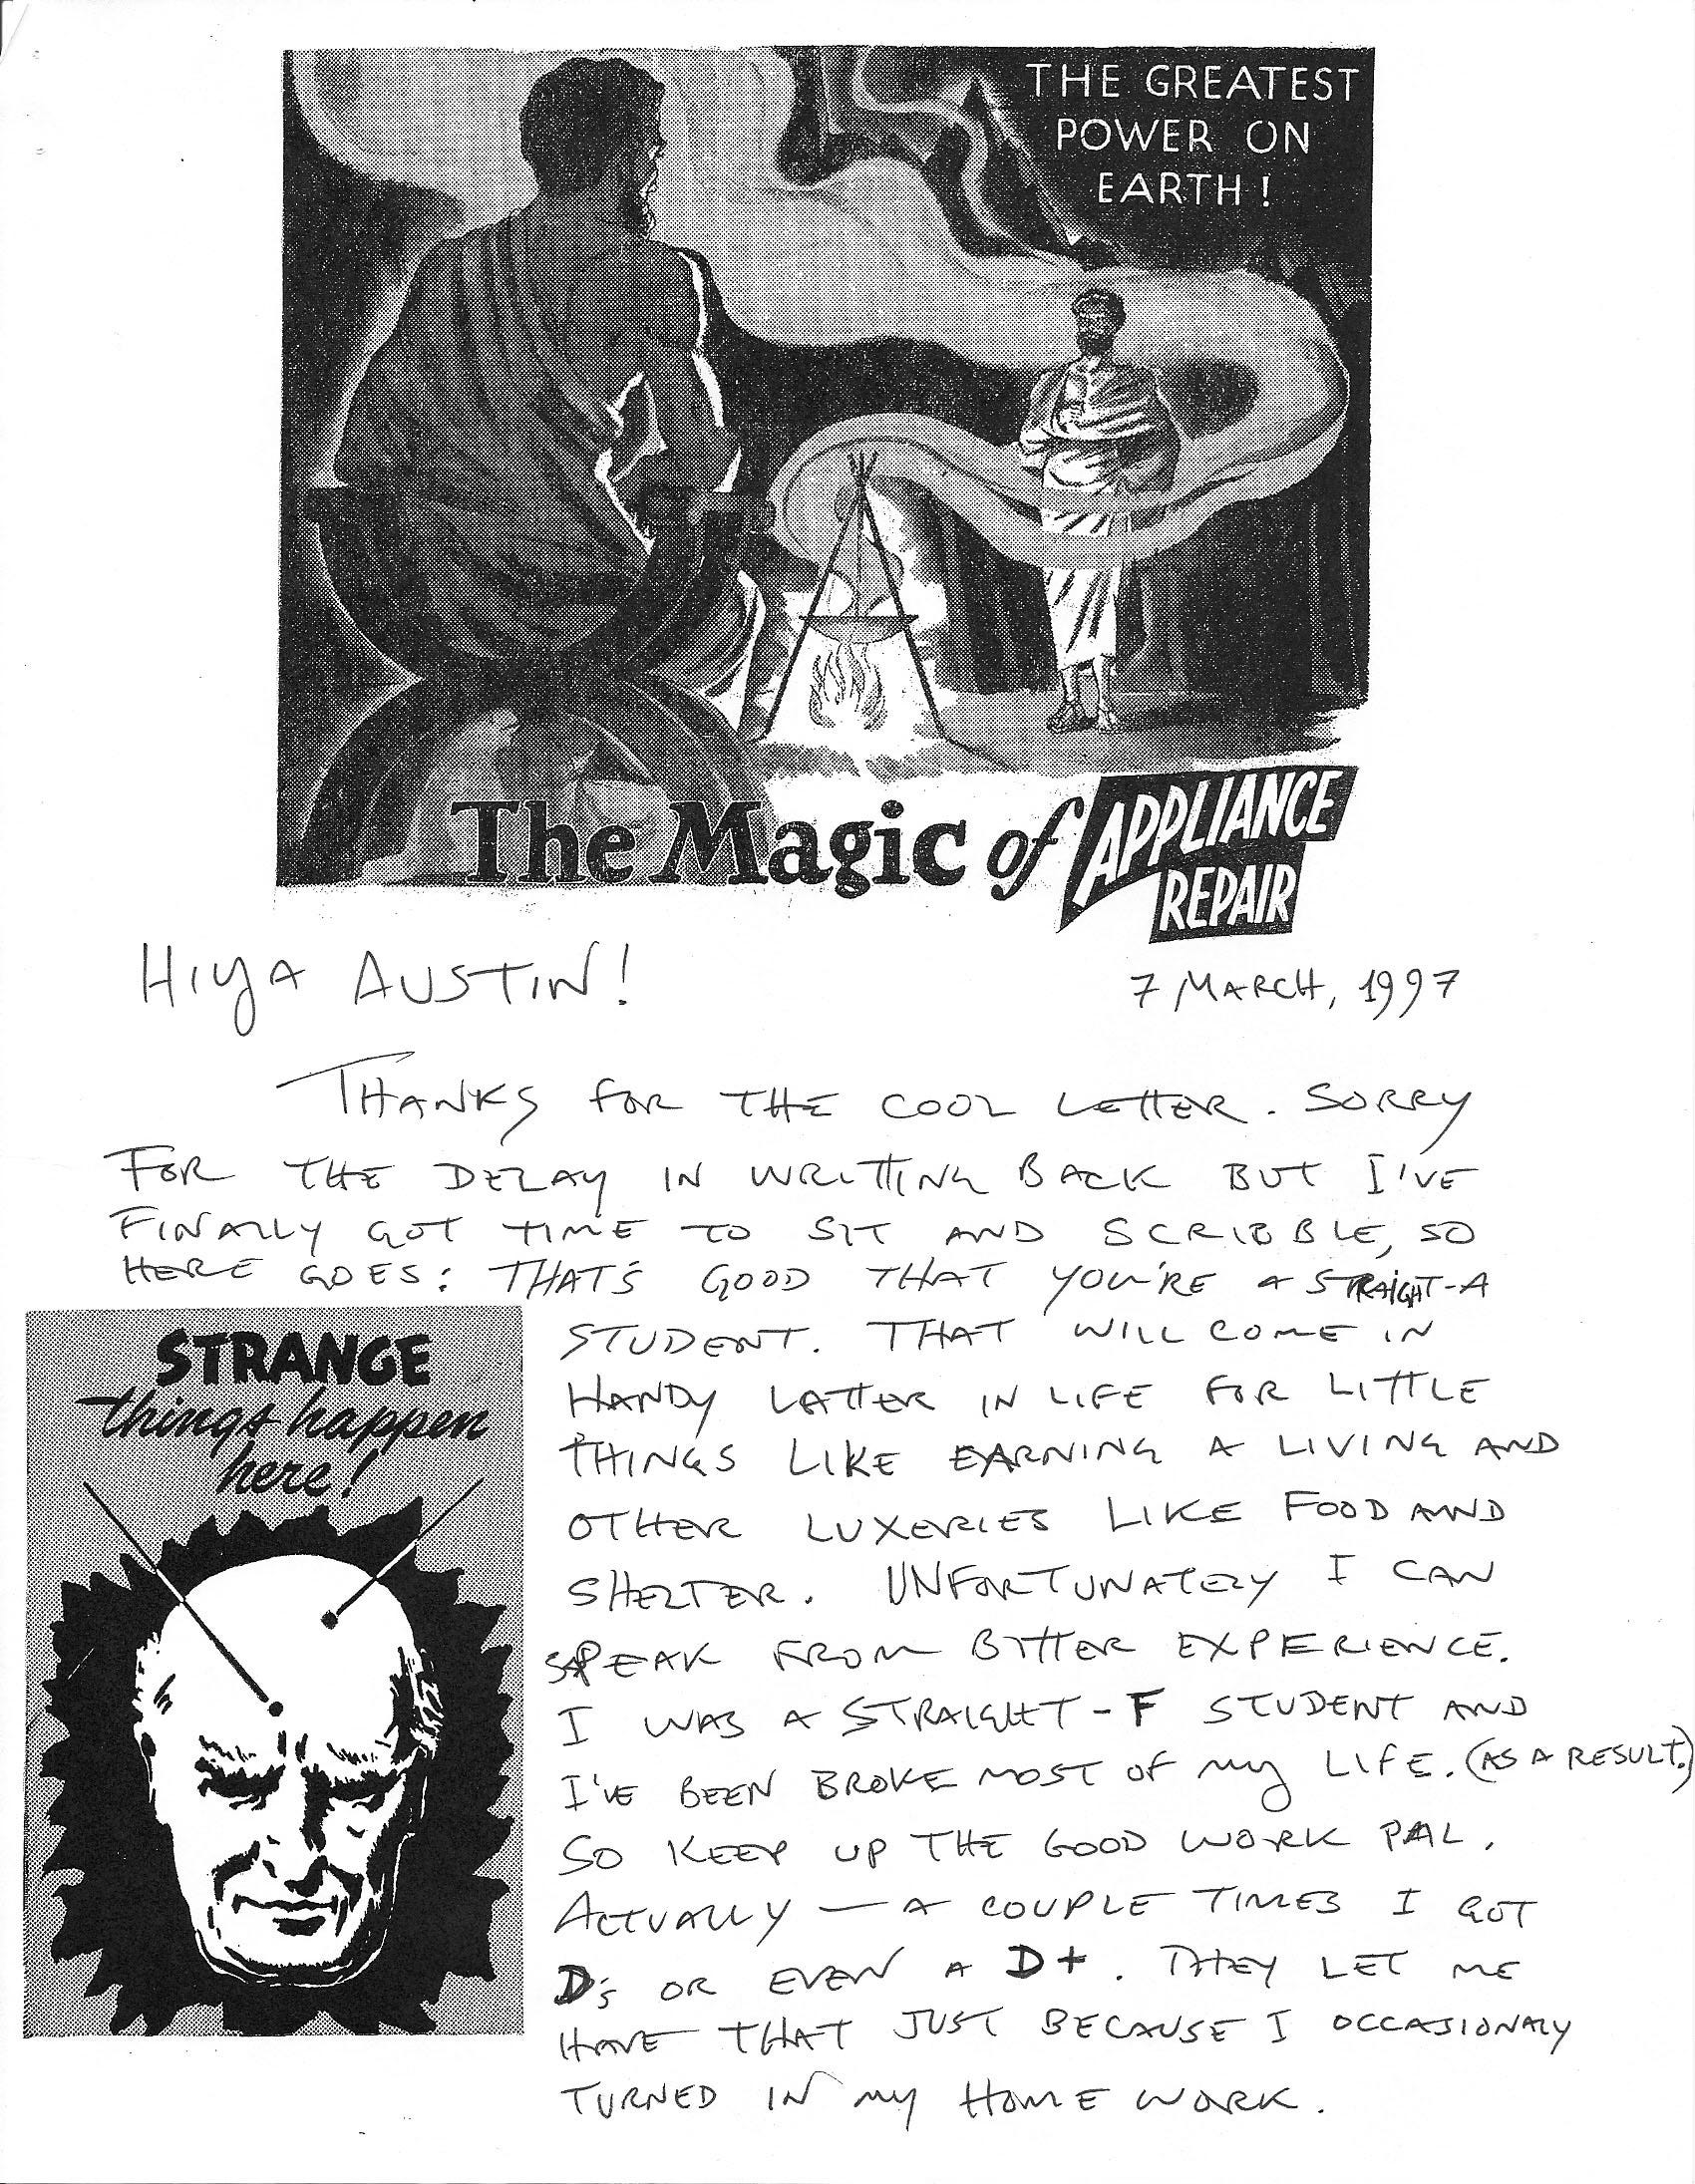 THE GREATEST
POWER ON
EARTH!
The Magic of APPLIANCE
REPAIR
HIYA AUSTIN!
7 MARCH, 1997
THANKS FOR THE COOL LETTER. SORRY
FOR THE DELAY IN WRITTING BACK BUT I'VE
FINALLY GOT TIME TO SIT AND SCRIBBLE, SO
HERE GOES: THAT'S GOOD THAT YOU'RE A STRAIGHT-A
STRANGE
things happen
here!
STUDENT. THAT WILL COME IN
HANDY LATTER IN LIFE FOR LITTLE
THINGS LIKE EARNING A LIVING AND
OTHER LUXERIES LIKE FOOD AND
SHELTER. UNFORTUNATELY I CAN
SPEAK FROM BITTER EXPERIENCE.
I WAS A STRAIGHT-F STUDENT AND
I'VE BEEN BROKE MOST OF MY LIFE. (AS A RESULT.)
SO KEEP UP THE GOOD WORK PAL.
ACTUALLY — A COUPLE TIMES I GOT
D's OR EVEN A D+. THEY LET ME
HAVE THAT JUST BECAUSE I OCCASIONALY
TURNED IN MY HOME WORK.